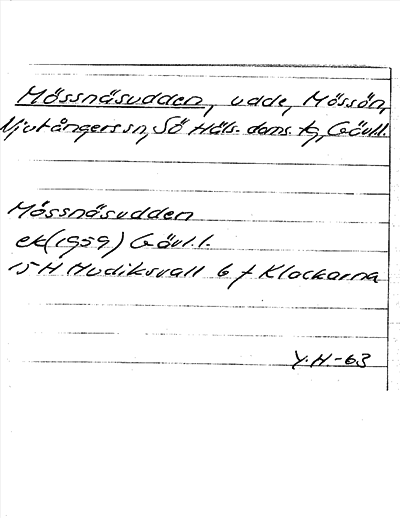 Mössnäsudden, udde, Mössön,
Njutångers sn, Sö Häls. doms. tg, Gävl.l.
Mössnäsudden
ek(1959) Gävl.l.
15 H Hudiksvall 6 f Klackarna
Y.H.-63